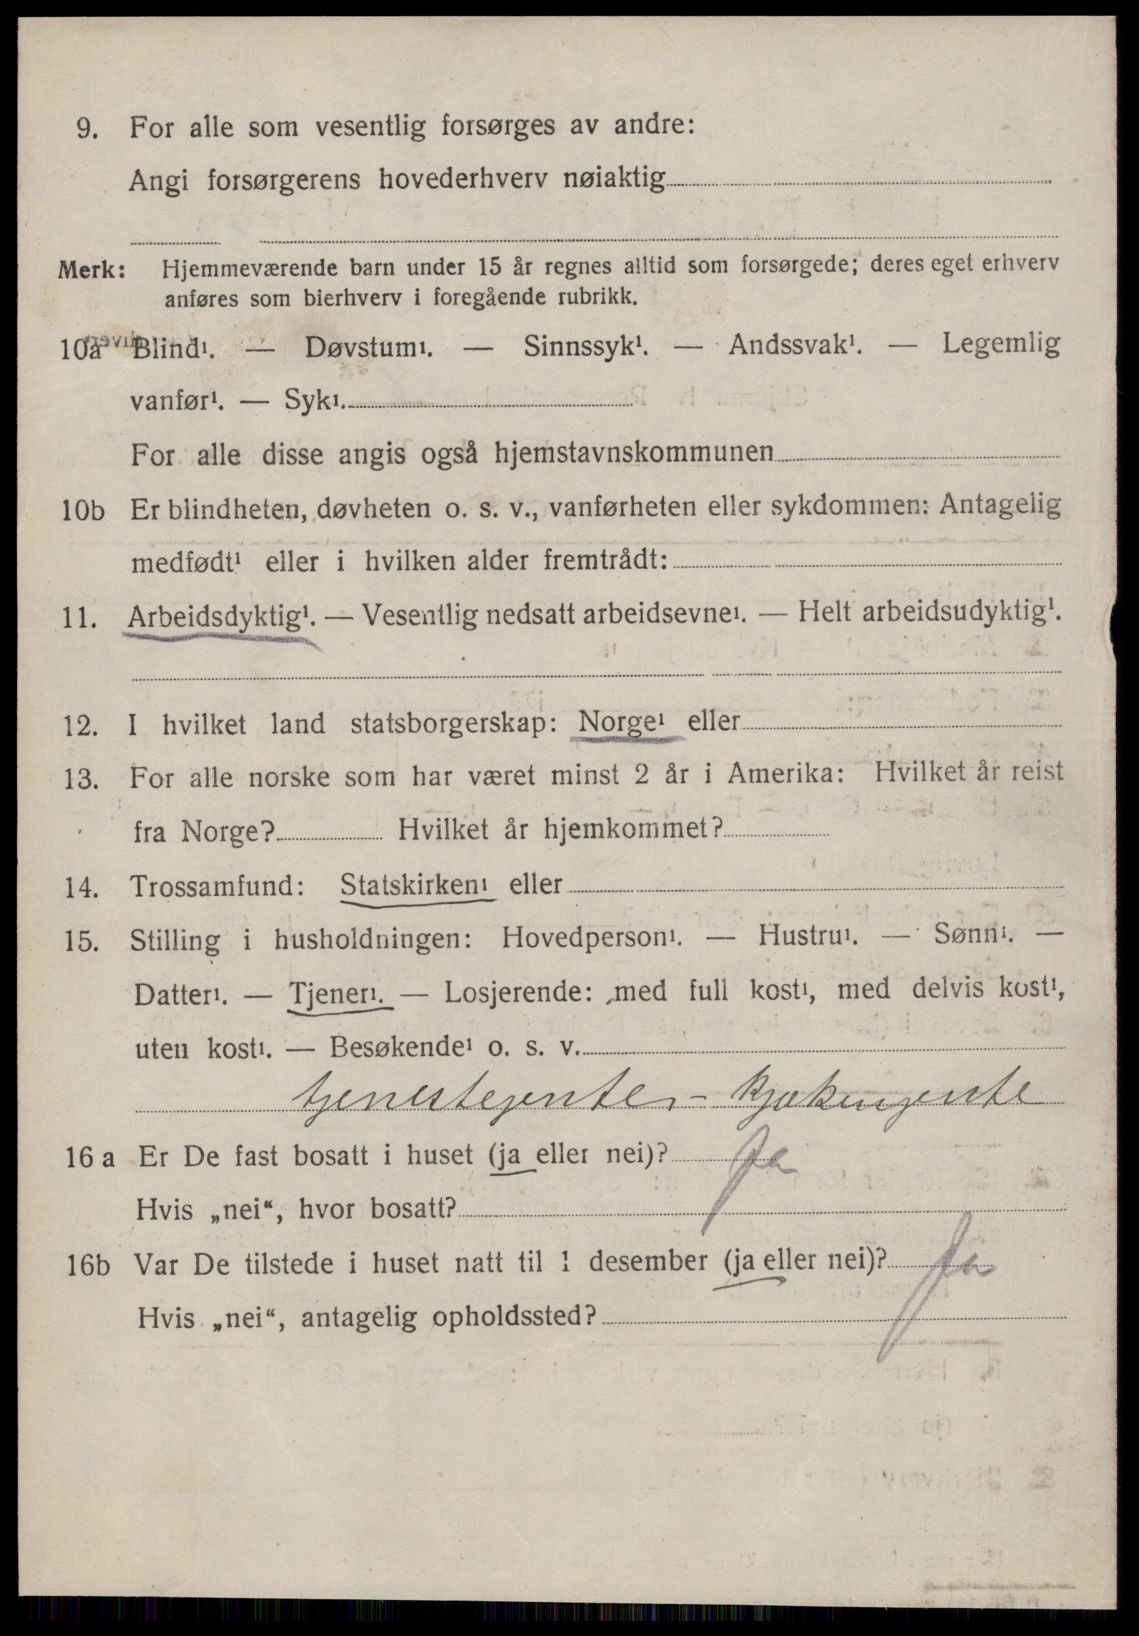 9. For alle som vesentlig forsørges av andre:
Angi forsørgerens hovederhverv nøiaktig
Merk: Hjemmeværende barn under 15 år regnes alltid som forsørgede; deres eget erhverv
anføres som bierhverv i foregående rubrikk.
10a Blind¹. — Døvstum¹. — Sinnssyk¹. — Andssvak¹. — Legemlig
vanfør¹. — Syk¹.
For alle disse angis også hjemstavnskommunen
10b Er blindheten, døvheten o. s. v., vanførheten eller sykdommen: Antagelig
medfødt¹ eller i hvilken alder fremtrådt:
11. Arbeidsdyktig¹. — Vesentlig nedsatt arbeidsevne¹. — Helt arbeidsudyktig¹.
12. I hvilket land statsborgerskap: Norge¹ eller
13. For alle norske som har været minst 2 år i Amerika: Hvilket år reist
fra Norge? Hvilket år hjemkommet?
14. Trossamfund: Statskirken¹ eller
15. Stilling i husholdningen: Hovedperson¹. — Hustru¹. — Sønn¹. —
Datter¹. — Tjener¹. — Losjerende: med full kost¹, med delvis kost¹,
uten kost¹. — Besøkende¹ o. s. v.
tjenestejente - kjøkenjente
16 a Er De fast bosatt i huset (ja eller nei)? Ja
Hvis „nei“, hvor bosatt?
16b Var De tilstede i huset natt til 1 desember (ja eller nei)? Ja
Hvis „nei“, antagelig opholdssted?